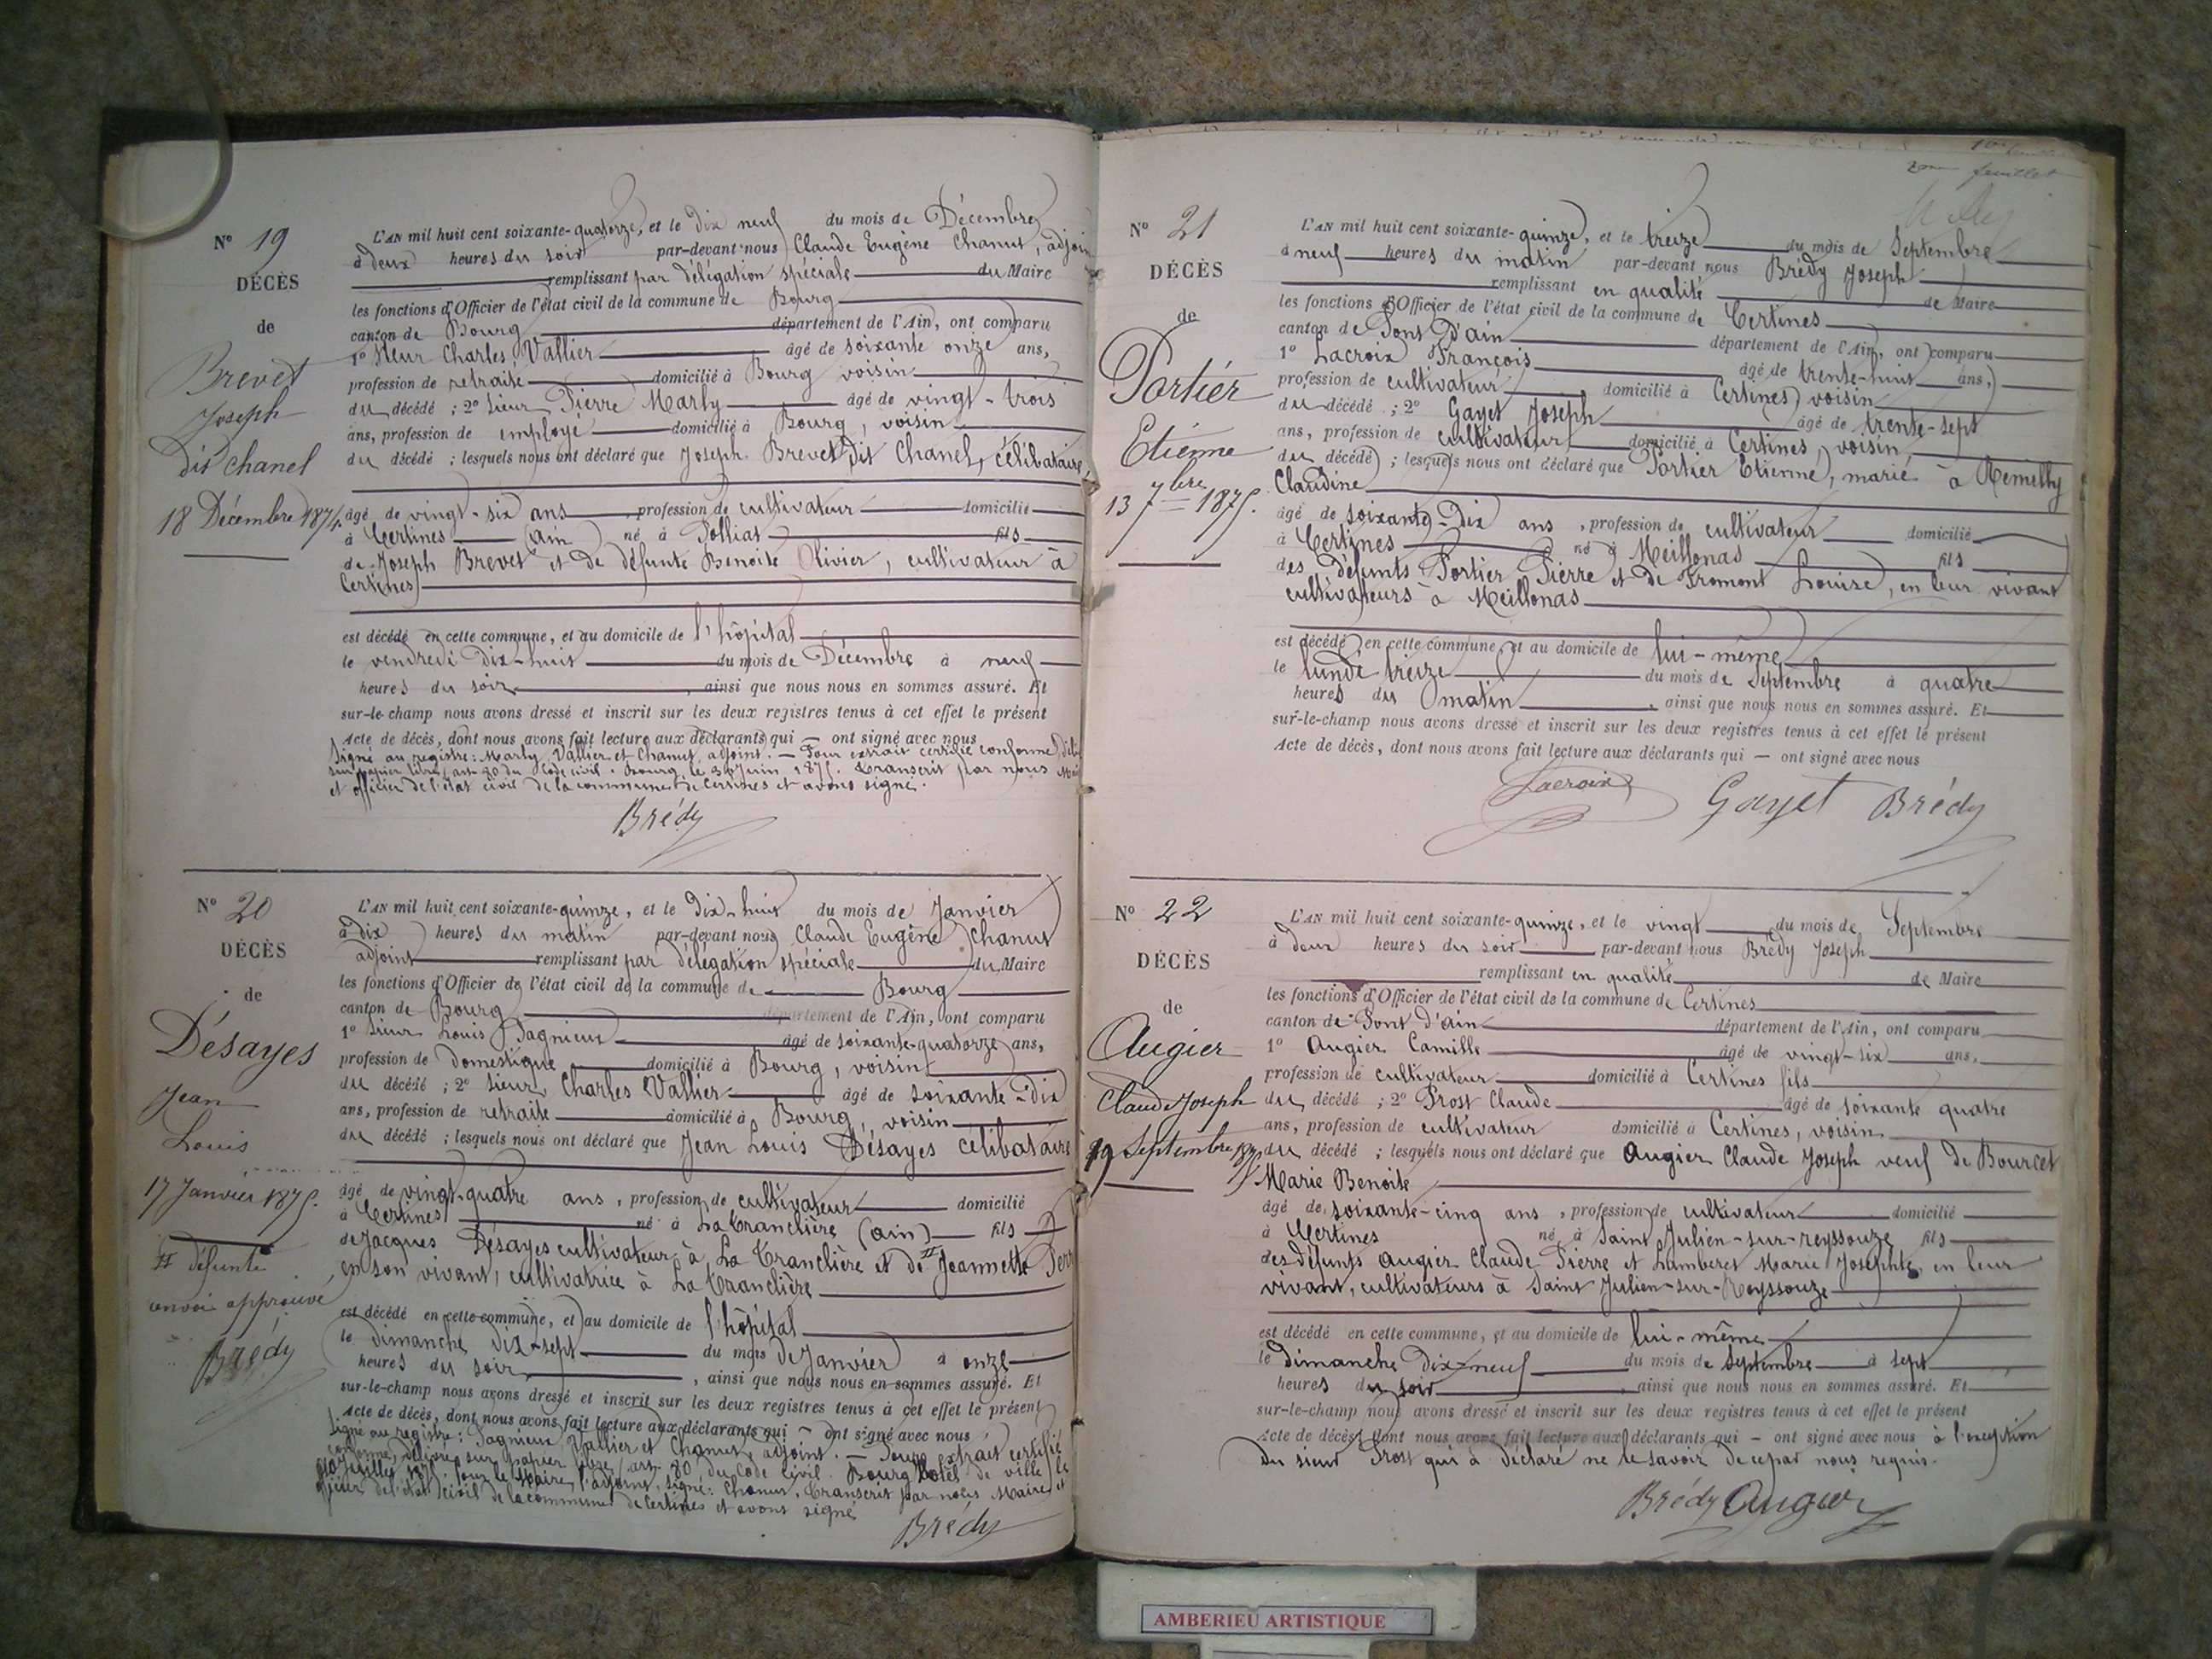 N° 19
DÉCÈS
de
Brevet
Joseph
dit Chanel
18 Décembre 1874.
L'AN mil huit cent soixante-quatorze, et le dix neuf du mois de Décembre
à deux heures du soir par-devant nous Claude Eugène Chanut, adjoin
remplissant par délégation spéciale du Maire
les fonctions d'Officier de l'état civil de la commune de Bourg
canton de Bourg département de l'Ain, ont comparu
1° Sieur Charles Vallier âgé de soixante onze ans,
profession de retraité domicilié à Bourg voisin
du décédé ; 2° Sieur Pierre Marly âgé de vingt-trois
ans, profession de employé domicilié à Bourg, voisin
du décédé ; lesquels nous ont déclaré que Joseph Brevet dit Chanel, célibataire,
âgé de vingt-six ans, profession de cultivateur domicilié
à Certines (Ain) né à Polliat fils
de Joseph Brevet et de défunte Benoite Olivier, cultivateur à
Certines
est décédé en cette commune, et au domicile de l'hôpital
le vendredi dix-huit du mois de Décembre à neuf
heures du soir, ainsi que nous nous en sommes assuré. Et
sur-le-champ nous avons dressé et inscrit sur les deux registres tenus à cet effet le présent
Acte de décès, dont nous avons fait lecture aux déclarants qui — ont signé avec nous
Signé au registre : Marly, Vallier et Chanut, adjoint. — Pour extrait certifié conforme
sur papier libre, art. 80 du Code civil. Bourg, le Juin 1875. Transcrit par nous
et officier de l'état civil de la commune de Certines et avons signé.
Brédy
N° 20
DÉCÈS
de
Désayes
Jean
Louis
17 Janvier 1875.
# défunte
renvoi approuvé
Brédy
L'AN mil huit cent soixante-quinze, et le dix-huit du mois de Janvier
à dix heures du matin par-devant nous Claude Eugène Chanut
adjoint remplissant par délégation spéciale du Maire
les fonctions d'Officier de l'état civil de la commune de Bourg
canton de Bourg département de l'Ain, ont comparu
1° Sieur Louis Pagnieux âgé de soixante-quatorze ans,
profession de domestique domicilié à Bourg, voisin
du décédé ; 2° Sieur Charles Vallier âgé de soixante-dix
ans, profession de retraité domicilié à Bourg, voisin
du décédé ; lesquels nous ont déclaré que Jean Louis Désayes célibataire
âgé de vingt-quatre ans, profession de cultivateur domicilié
à Certines né à La Tranclière (Ain) fils
de Jacques Désayes cultivateur à La Tranclière et de # Jeannette
en son vivant, cultivatrice à La Tranclière
est décédé en cette commune, et au domicile de l'hôpital
le dimanche dix-sept du mois de Janvier à onze
heures du soir, ainsi que nous nous en sommes assuré. Et
sur-le-champ nous avons dressé et inscrit sur les deux registres tenus à cet effet le présent
Acte de décès, dont nous avons fait lecture aux déclarants qui — ont signé avec nous
Signé au registre : Pagnieux, Vallier et Chanut, adjoint. — Pour extrait certifié
conforme, délivré sur papier libre, art. 80, du Code civil. Bourg, hôtel de ville, le
Pour le Maire, l'adjoint, signé : Chanut, Transcrit par nous Maire et
officier de l'état civil de la commune de Certines et avons signé
Brédy
2me feuillet
N° 21
DÉCÈS
de
Portier
Etienne
13 7bre 1875.
L'AN mil huit cent soixante-quinze, et le treize du mois de Septembre
à neuf heures du matin par-devant nous Brédy Joseph
remplissant en qualité de Maire
les fonctions d'Officier de l'état civil de la commune de Certines
canton de Pont d'ain département de l'Ain, ont comparu
1° Lacroix François âgé de trente-huit ans,
profession de cultivateur domicilié à Certines voisin
du décédé ; 2° Gayet Joseph âgé de trente-sept
ans, profession de cultivateur domicilié à Certines, voisin,
du décédé ; lesquels nous ont déclaré que Portier Etienne, marié à Remilly
Claudine
âgé de soixante-dix ans, profession de cultivateur domicilié
à Certines né à Meillonas fils
des défunts Portier Pierre et de Fromont Louise, en leur vivant
cultivateurs à Meillonas
est décédé en cette commune, et au domicile de lui-même
le lundi treize du mois de Septembre à quatre
heures du matin, ainsi que nous nous en sommes assuré. Et
sur-le-champ nous avons dressé et inscrit sur les deux registres tenus à cet effet le présent
Acte de décès, dont nous avons fait lecture aux déclarants qui — ont signé avec nous
Lacroix Gayet Brédy
N° 22
DÉCÈS
de
Augier
Claude Joseph
19 Septembre 1875
L'AN mil huit cent soixante-quinze, et le vingt du mois de Septembre
à deux heures du soir par-devant nous Brédy Joseph
remplissant en qualité de Maire
les fonctions d'Officier de l'état civil de la commune de Certines
canton de Pont d'ain département de l'Ain, ont comparu
1° Augier Camille âgé de vingt-six ans,
profession de cultivateur domicilié à Certines fils
du décédé ; 2° Prost Claude âgé de soixante quatre
ans, profession de cultivateur domicilié à Certines, voisin
du décédé ; lesquels nous ont déclaré que Augier Claude Joseph veuf de Bourcet
Marie Benoite
âgé de soixante-cinq ans, profession de cultivateur domicilié
à Certines né à Saint Julien-sur-reyssouze fils
des défunts Augier Claude Pierre et Lamberet Marie Josephte, en leur
vivant, cultivateurs à Saint Julien-sur-Reyssouze
est décédé en cette commune, et au domicile de lui-même
le dimanche dix-neuf du mois de Septembre à sept
heures du soir, ainsi que nous nous en sommes assuré. Et
sur-le-champ nous avons dressé et inscrit sur les deux registres tenus à cet effet le présent
Acte de décès, dont nous avons fait lecture aux déclarants qui — ont signé avec nous à l'exception
du sieur Prost qui a déclaré ne le savoir de ce par nous requis.
Brédy Augier
AMBERIEU ARTISTIQUE